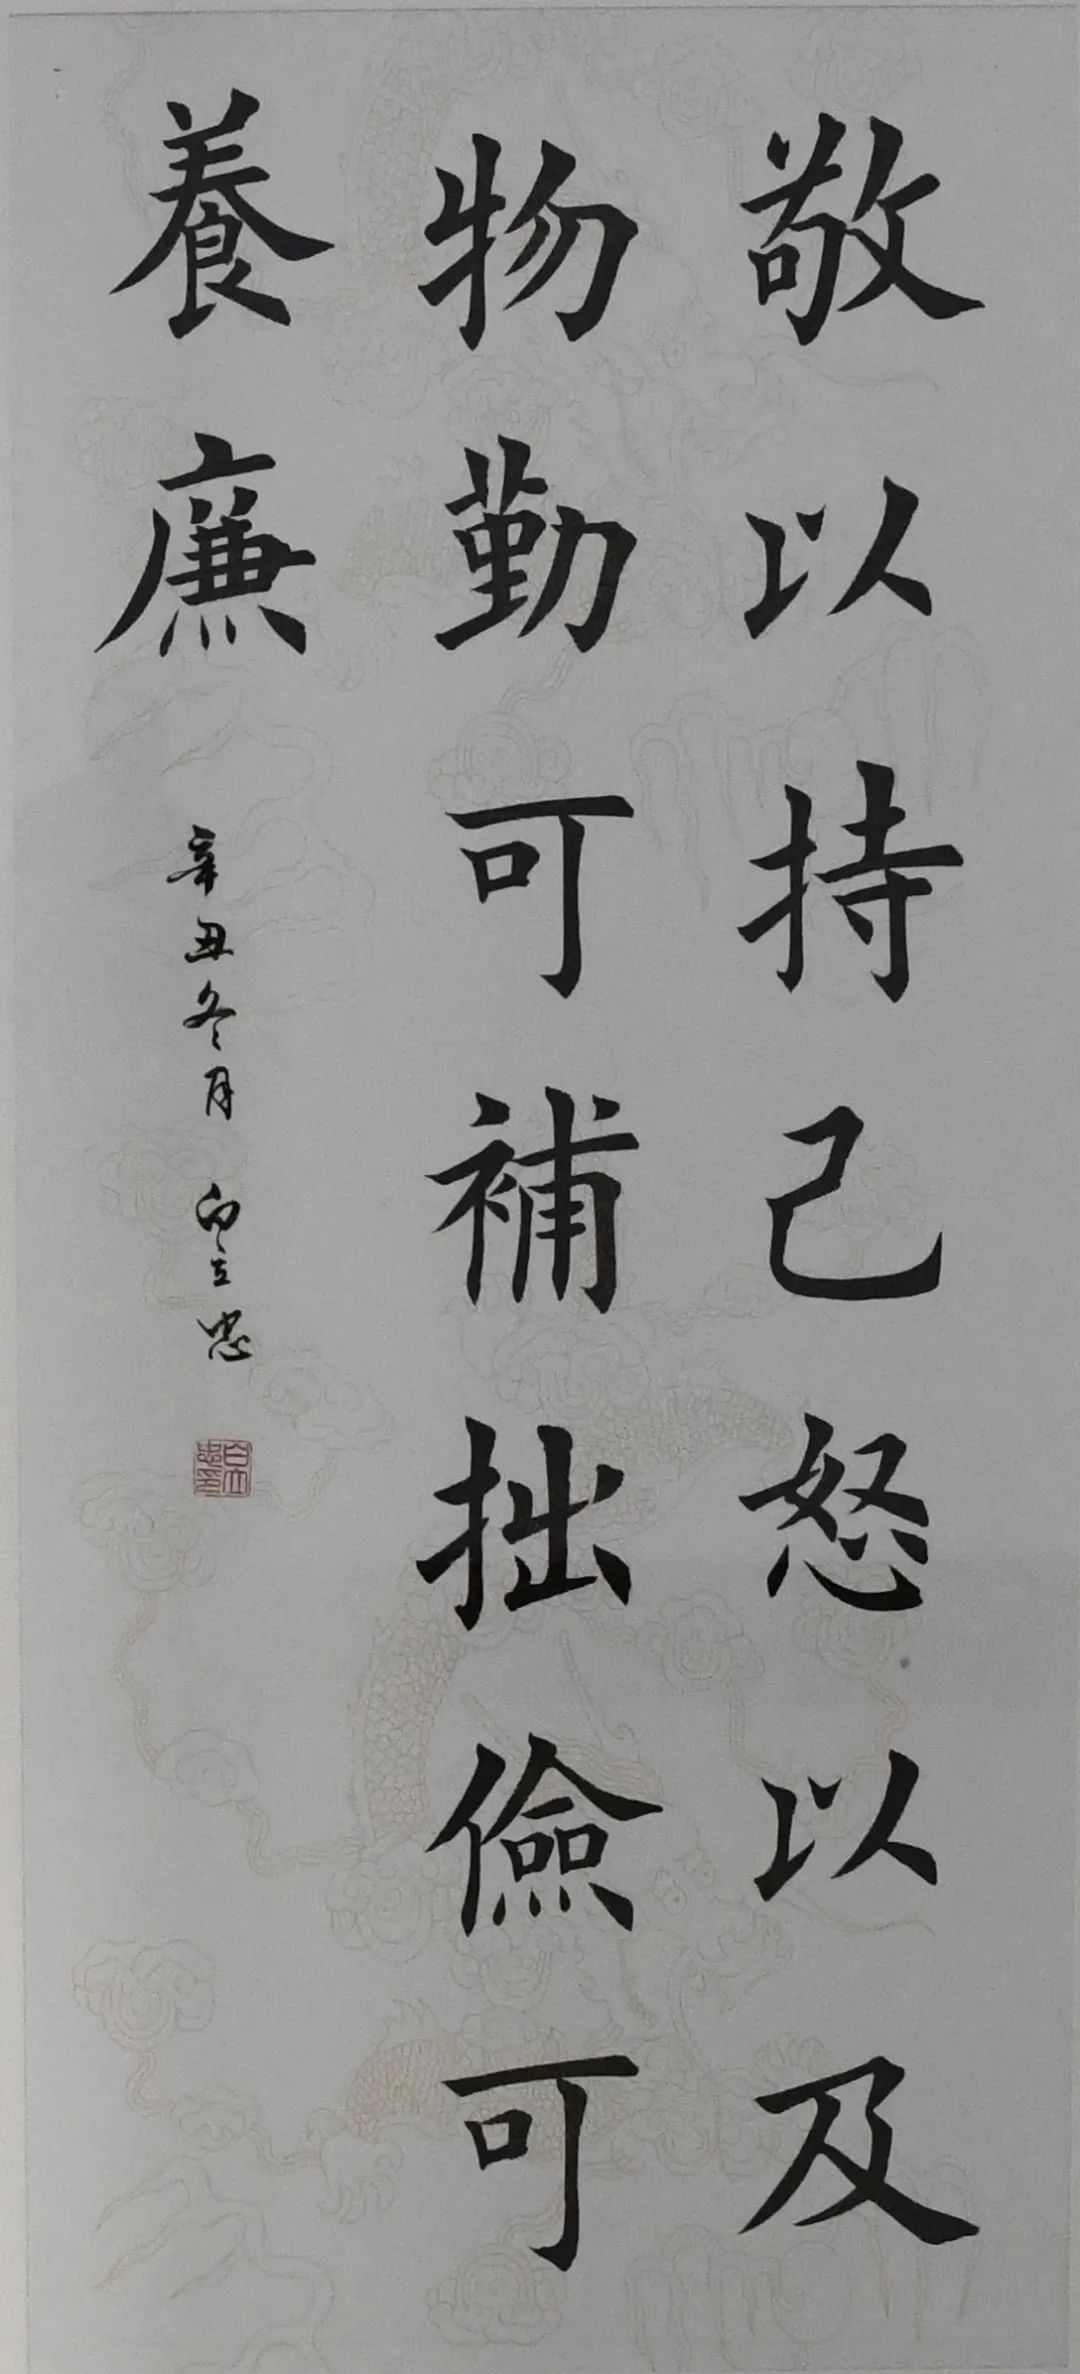 敬以持己怒以及
物勤可補拙儉可
養廉
辛丑冬月 白立忠
白立忠印